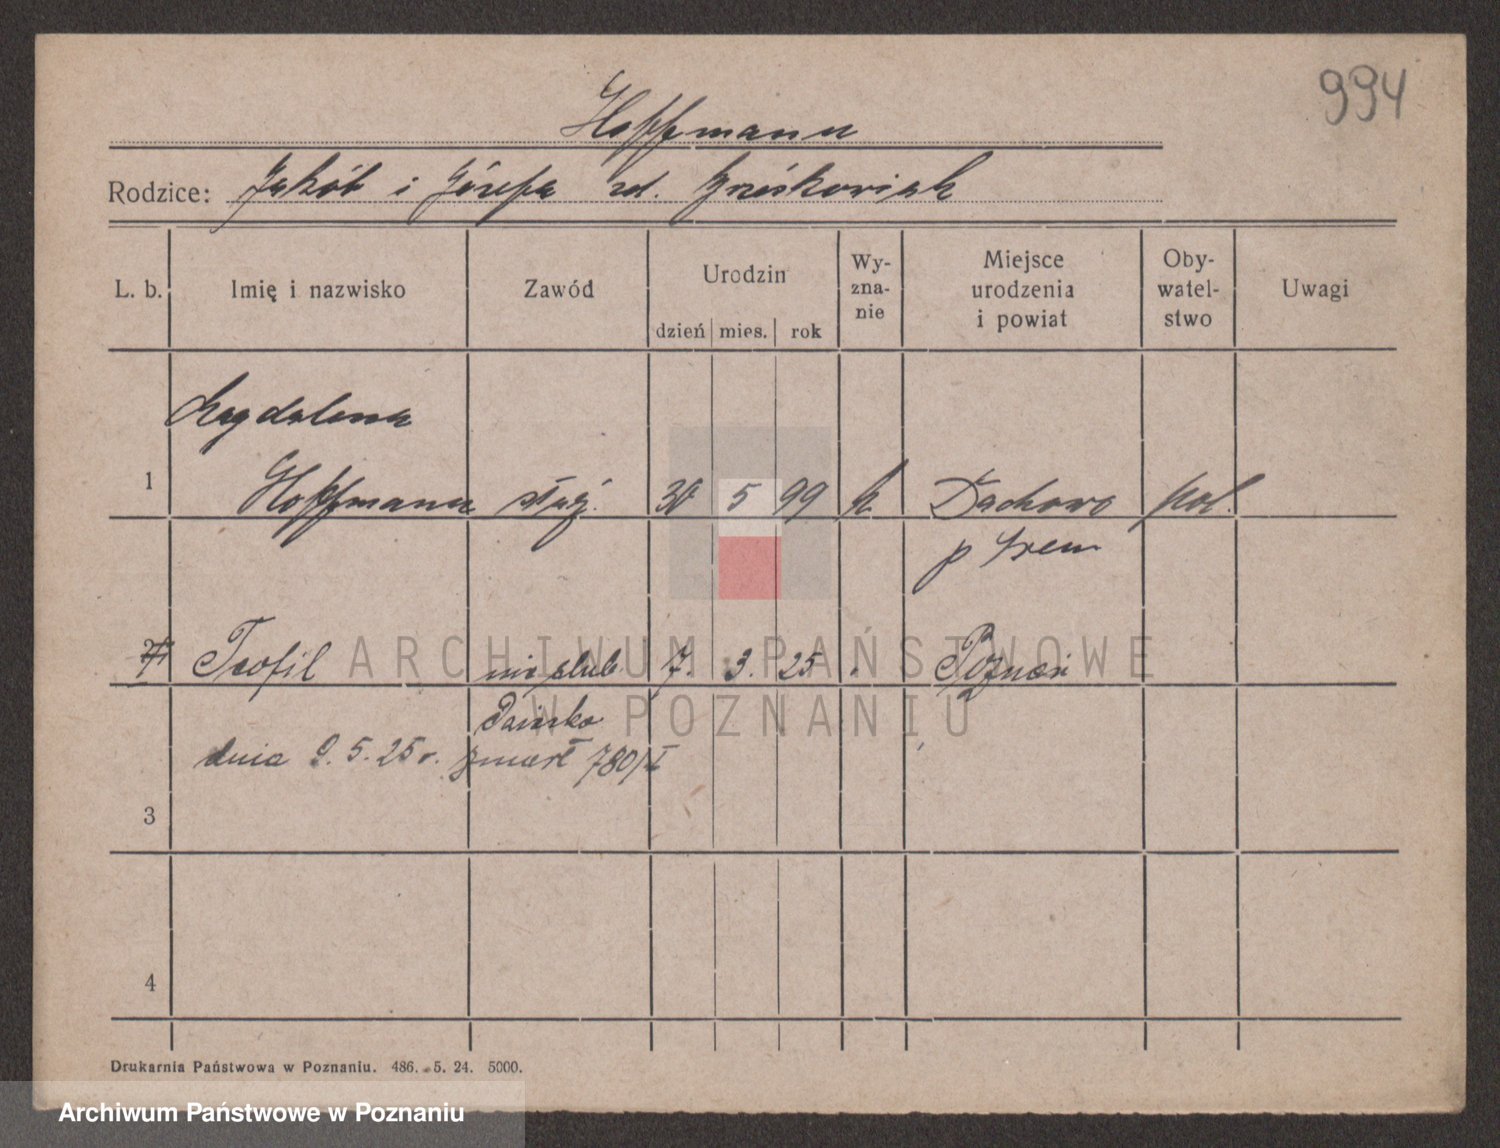 994
Hoffmann
Rodzice: Jakób i Józefa zd. Grześkowiak
L. b. Imię i nazwisko Zawód Urodzin dzień mies. rok Wy-zna-nie Miejsce urodzenia i powiat Oby-watel-stwo Uwagi
Magdalena
1 Hoffmann służ. 30 5 99 k. Dachowo pol.
p Śrem
Teofil nieślub. 7. 3. 25 Poznań
dnia 9.5.25r. zmarł 780/I
3
4
Drukarnia Państwowa w Poznaniu. 486. 5. 24. 5000.
ARCHIWUM PAŃSTWOWE
W POZNANIU
Archiwum Państwowe w Poznaniu